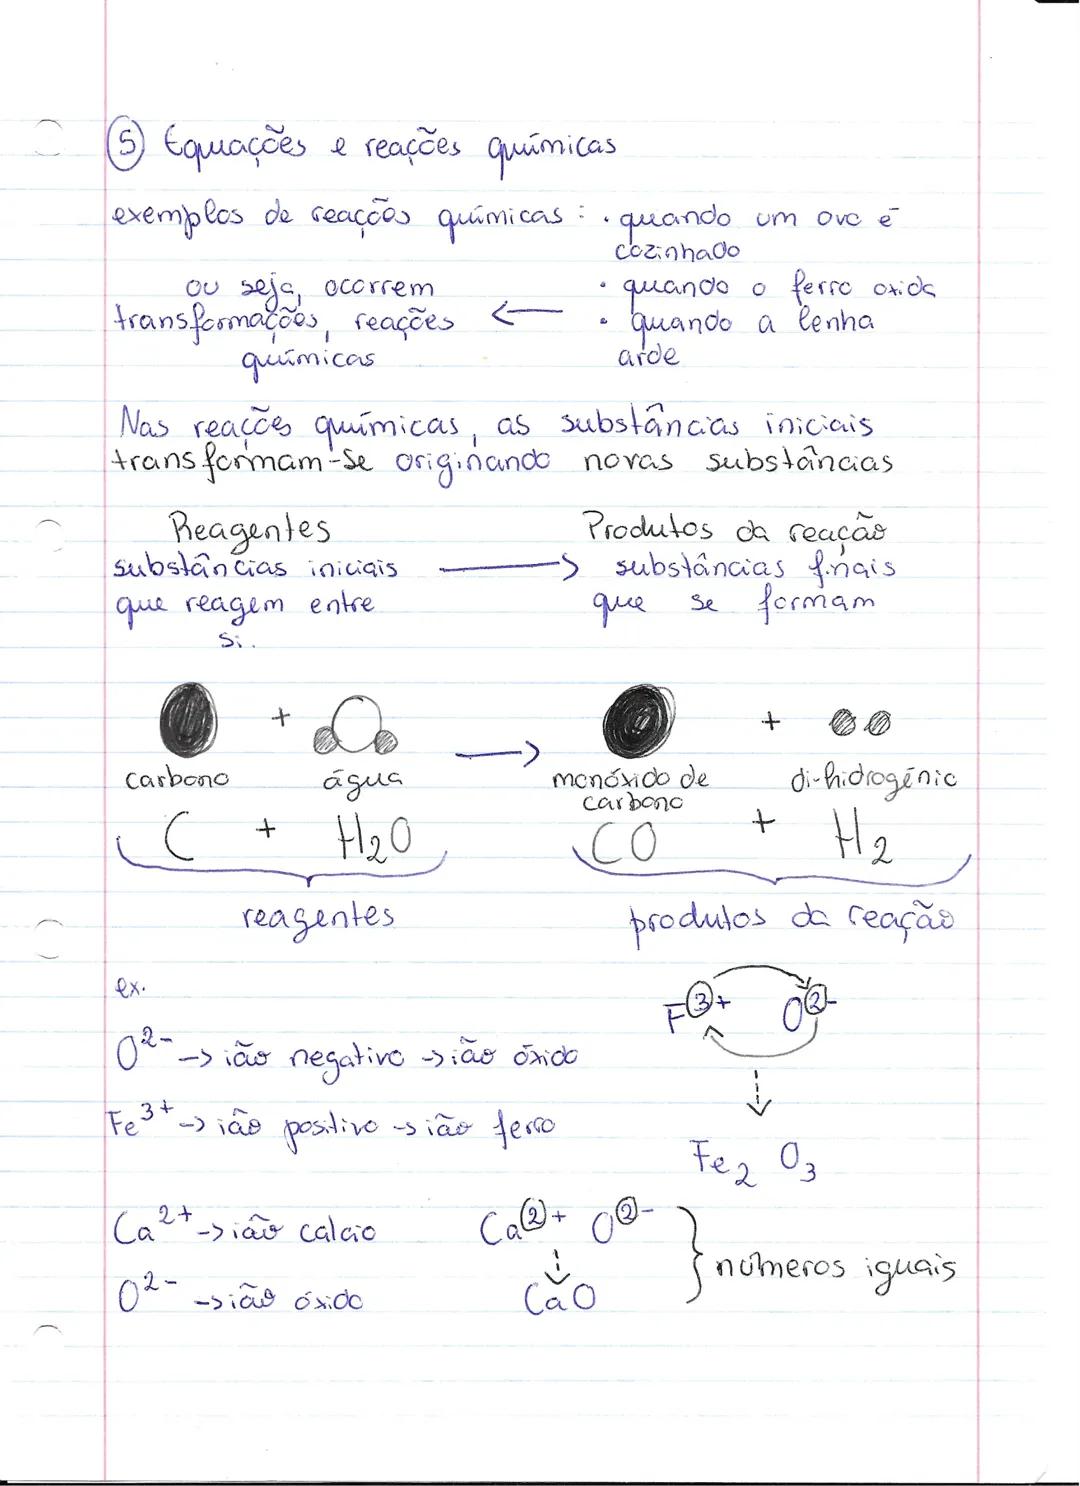 ⑤ Equações e reacções químicas
exemplos de reacções químicas : . quando um ovo é
cozinhado
ou seja, ocorrem
transformações, reacções
químicas
←
• quando o ferro oxida
• quando a lenha
arde
Nas reacções químicas, as substâncias iniciais
transformam-se originando novas substâncias
Reagentes
substâncias iniciais
que reagem entre
si.
→
Produtos da reacção
substâncias finais
que se formam
+ → +
carbono água monóxido de
carbono di-hidrogénio
C + H2O CO + H2
reagentes produtos da reacção
ex.
F③+ O②-
O²⁻ → ião negativo → ião óxido
Fe³⁺ → ião positivo → ião ferro
Fe2 O3
Ca²⁺ → ião calcio Ca②+ O②-
O²⁻ → ião óxido CaO
} números iguais